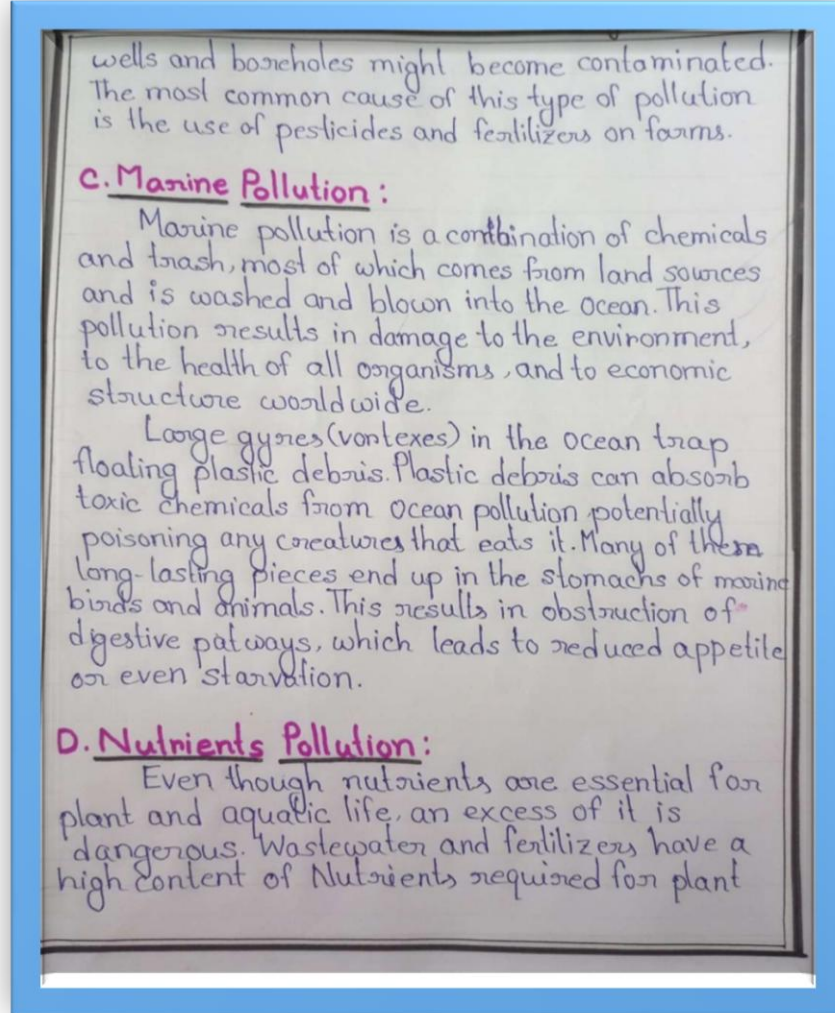 wells and boreholes might become contaminated.
The most common cause of this type of pollution
is the use of pesticides and fertilizers on farms.
C. Marine Pollution :
Marine pollution is a combination of chemicals
and trash, most of which comes from land sources
and is washed and blown into the ocean. This
pollution results in damage to the environment,
to the health of all organisms, and to economic
structure worldwide.
Large gyres (vortexes) in the ocean trap
floating plastic debris. Plastic debris can absorb
toxic chemicals from ocean pollution potentially
poisoning any creatures that eats it. Many of them
long-lasting pieces end up in the stomachs of marine
birds and animals. This results in obstruction of
digestive patways, which leads to reduced appetite
or even starvation.
D. Nutrients Pollution :
Even though nutrients are essential for
plant and aquatic life, an excess of it is
dangerous. Wastewater and fertilizers have a
high content of Nutrients required for plant